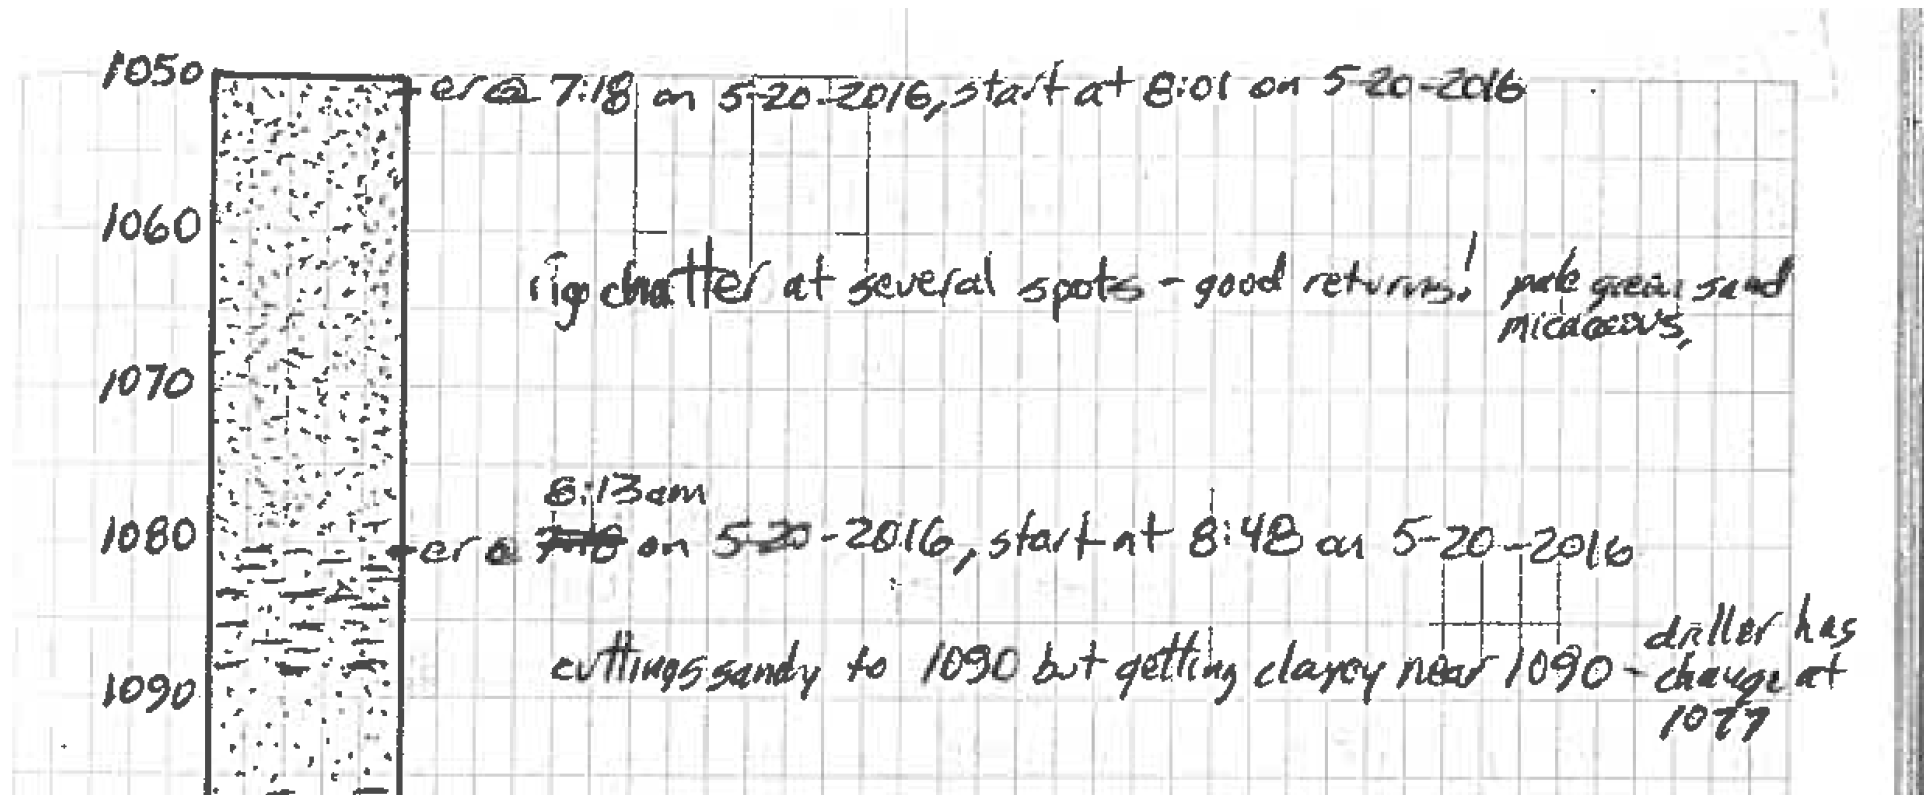 1050 er @ 7:18 on 5-20-2016, start at 8:01 on 5-20-2016
1060
rig chatter at several spots - good returns! pale green sand
micaceous,
1070
8:13am
1080 er @ 7:18 on 5-20-2016, start at 8:48 on 5-20-2016
driller has
cuttings sandy to 1090 but getting clayey near 1090 - change at
1090
1077